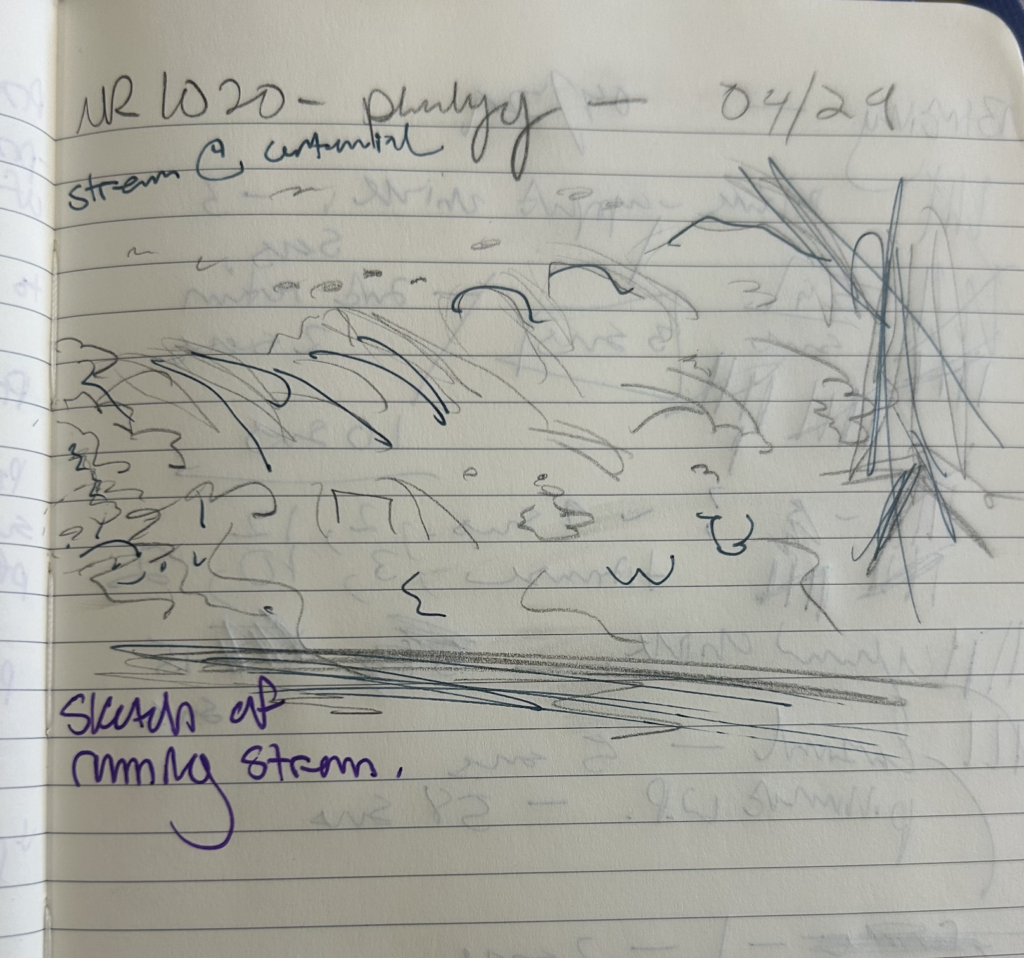 NR 1020 - phenology - 04/29
stream @ centennial
Sketch of
running stream.